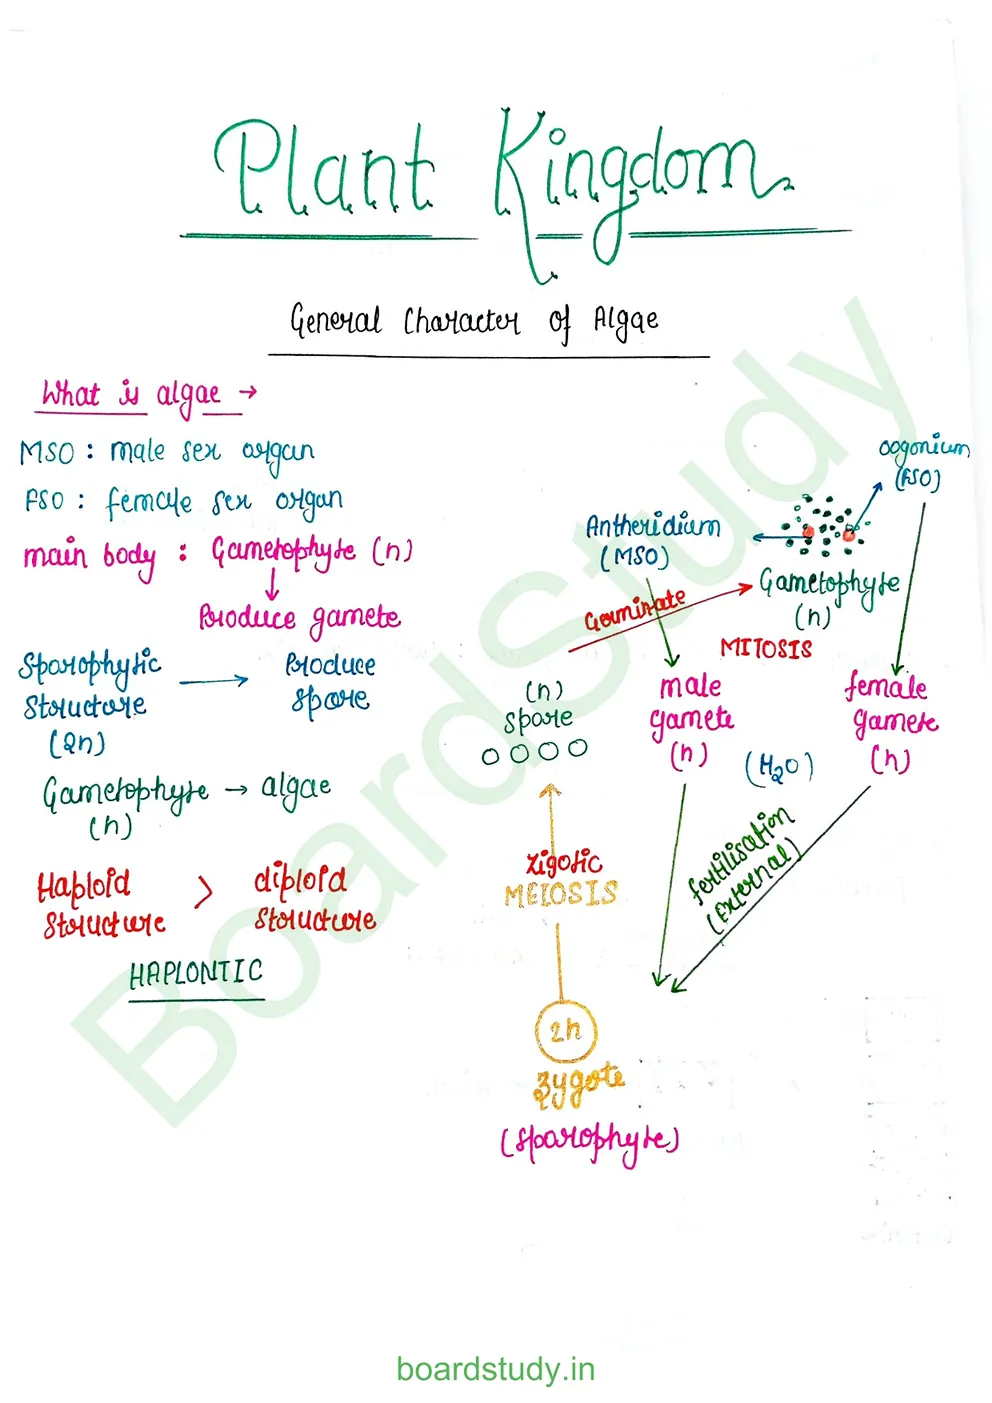 Plant Kingdom
General Character of Algae
What is algae →
MSO : male sex organ
FSO : female sex organ
main body : Gametophyte (n)
↓
Produce gamete
Sporophytic Structure (2n) → Produce Spore
Gametophyte (n) → algae
Haploid Structure > diploid Structure
HAPLONTIC
oogonium
(FSO)
Antheridium
(MSO)
Gametophyte
(n)
Germinate
MITOSIS
(n)
Spore
male
gamete
(n)
female
gamete
(n)
(H2O)
fertilisation
(External)
Zigotic
MEIOSIS
2n
Zygote
(Sporophyte)
BoardStudy
boardstudy.in